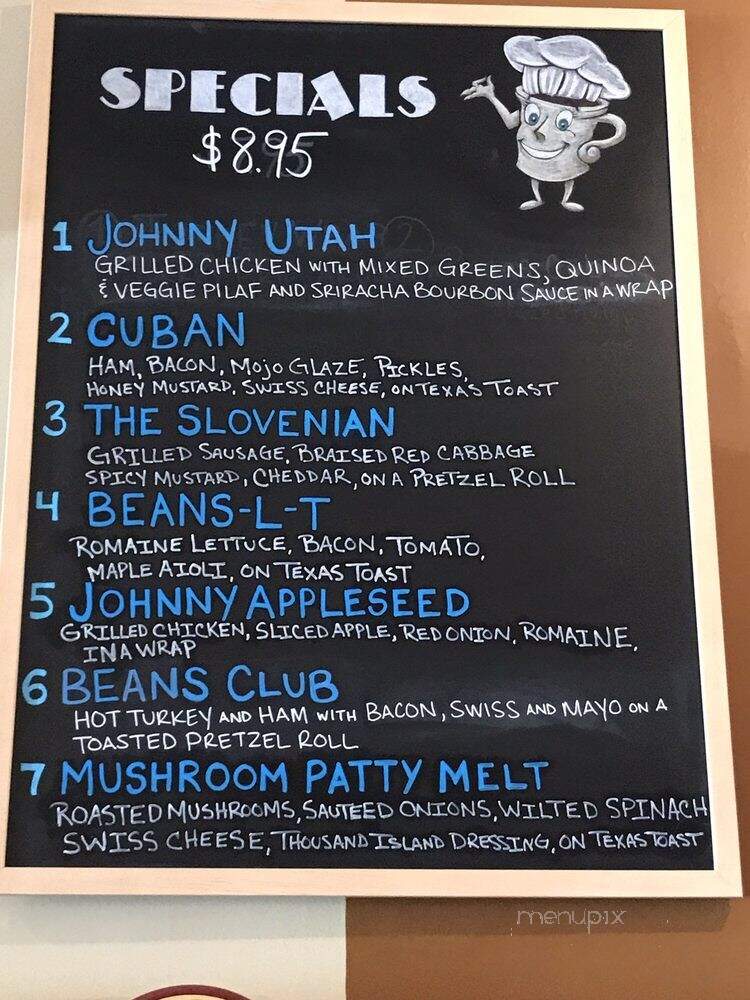 SPECIALS
$8.95
1 JOHNNY UTAH
GRILLED CHICKEN WITH MIXED GREENS, QUINOA
& VEGGIE PILAF AND SRIRACHA BOURBON SAUCE IN A WRAP
2 CUBAN
HAM, BACON, MOJO GLAZE, PICKLES,
HONEY MUSTARD, SWISS CHEESE, ON TEXAS TOAST
3 THE SLOVENIAN
GRILLED SAUSAGE, BRAISED RED CABBAGE
SPICY MUSTARD, CHEDDAR, ON A PRETZEL ROLL
4 BEANS-L-T
ROMAINE LETTUCE, BACON, TOMATO,
MAPLE AIOLI, ON TEXAS TOAST
5 JOHNNY APPLESEED
GRILLED CHICKEN, SLICED APPLE, RED ONION, ROMAINE,
IN A WRAP
6 BEANS CLUB
HOT TURKEY AND HAM WITH BACON, SWISS AND MAYO ON A
TOASTED PRETZEL ROLL
7 MUSHROOM PATTY MELT
ROASTED MUSHROOMS, SAUTEED ONIONS, WILTED SPINACH
SWISS CHEESE, THOUSAND ISLAND DRESSING, ON TEXAS TOAST
menupix